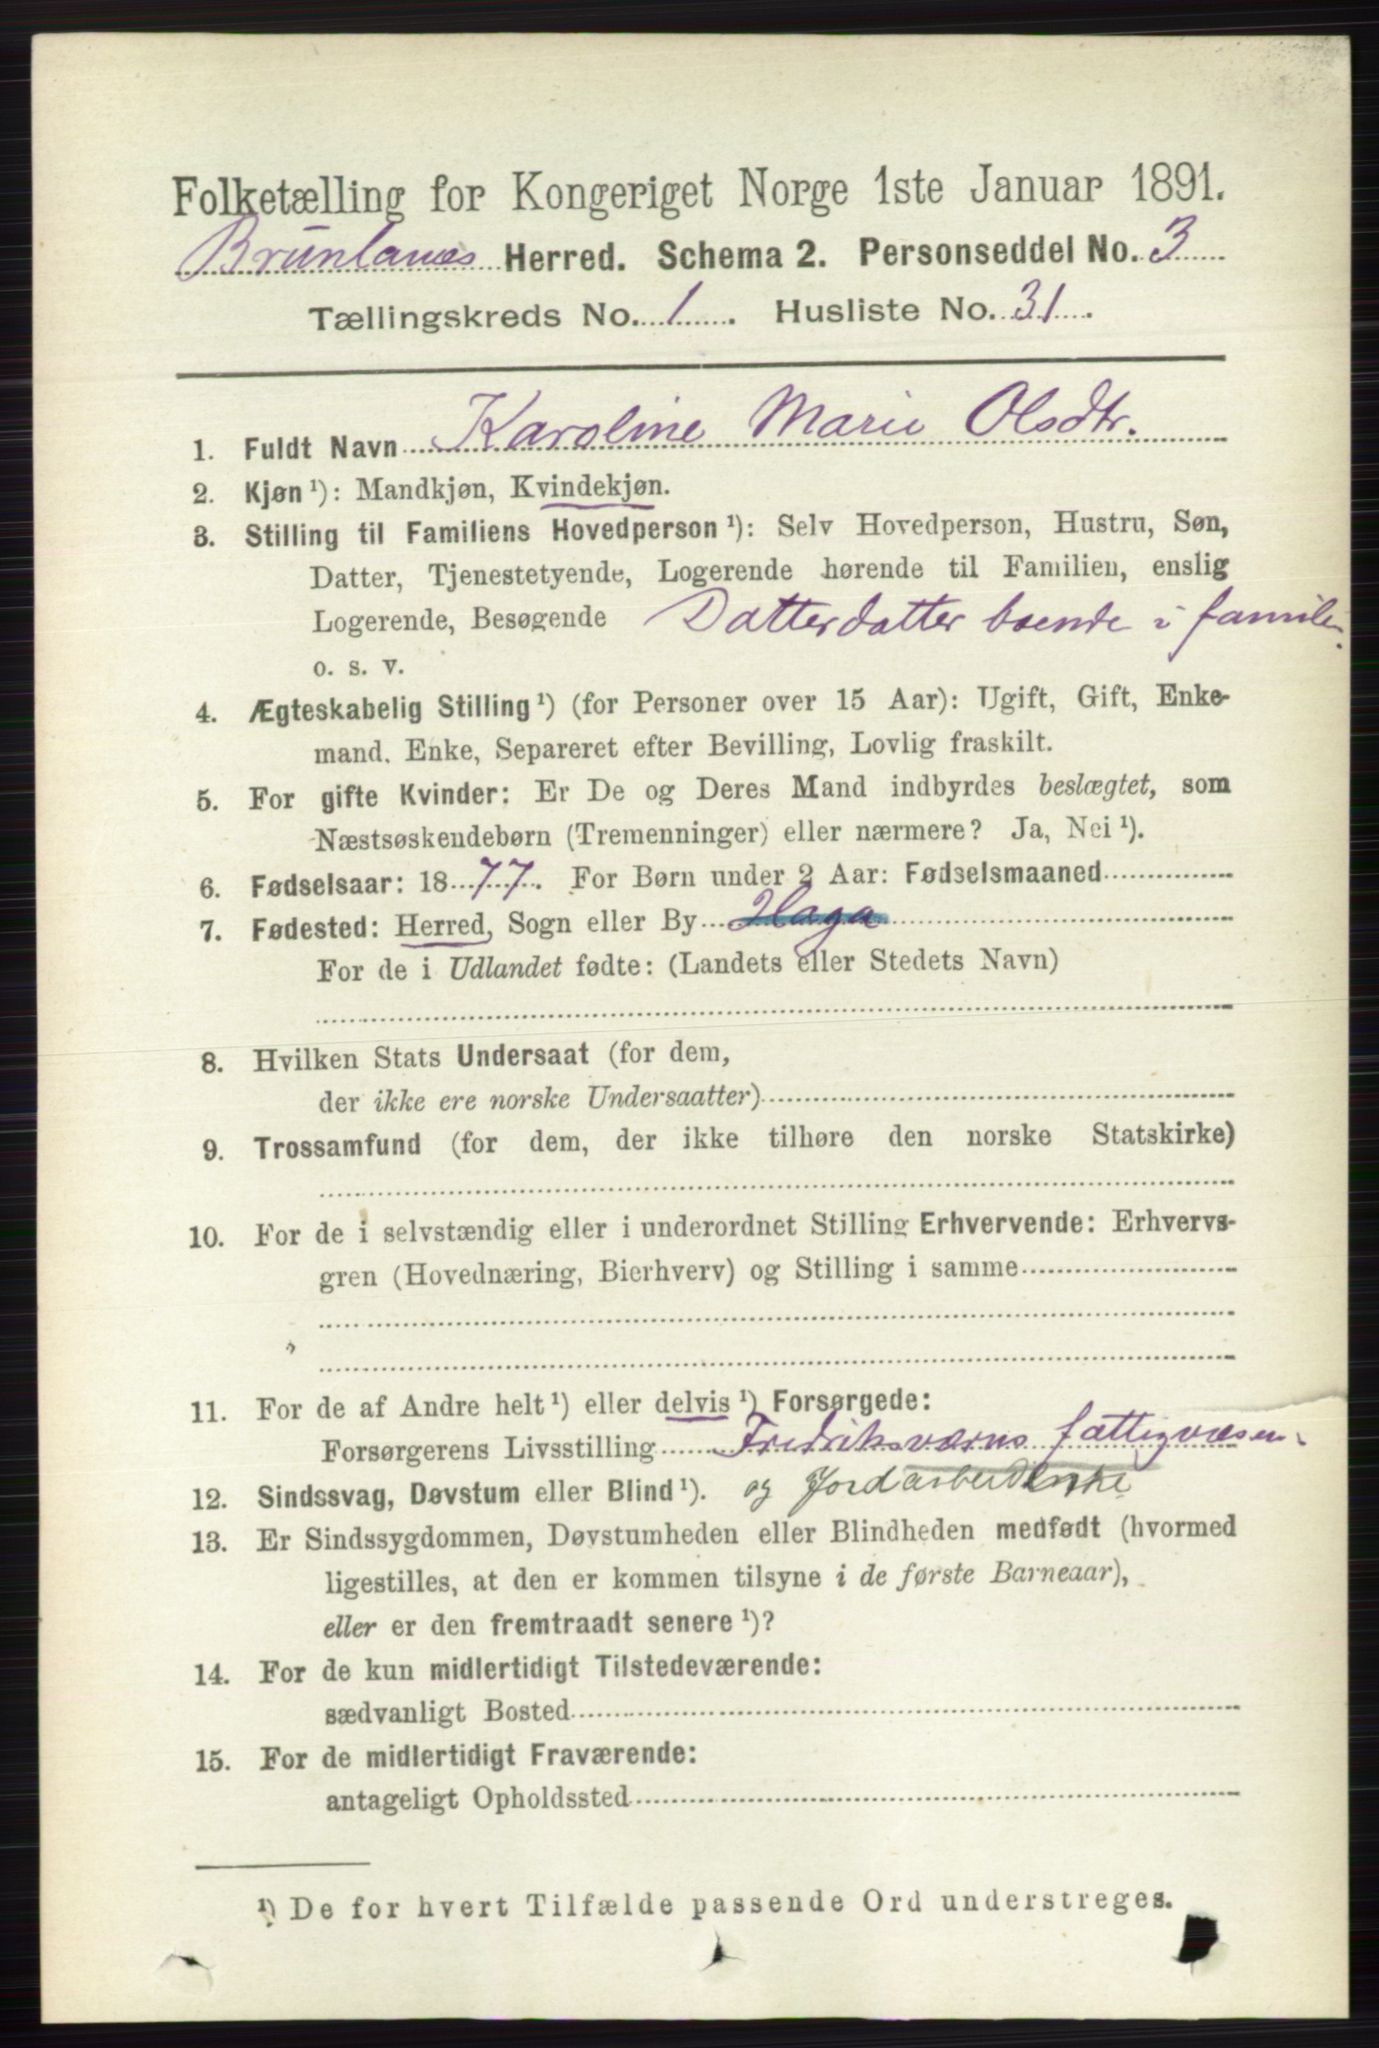 Folketælling for Kongeriget Norge 1ste Januar 1891.
Brunlanes Herred. Schema 2. Personseddel No. 3
Tællingskreds No. 1. Husliste No. 31.
1. Fuldt Navn Karoline Marie Olsdtr.
2. Kjøn ¹): Mandkjøn, Kvindekjøn.
3. Stilling til Familiens Hovedperson ¹): Selv Hovedperson, Hustru, Søn,
Datter, Tjenestetyende, Logerende hørende til Familien, enslig
Logerende, Besøgende Datterdatter boende i familien.
o. s. v.
4. Ægteskabelig Stilling ¹) (for Personer over 15 Aar): Ugift, Gift, Enke-
mand, Enke, Separeret efter Bevilling, Lovlig fraskilt.
5. For gifte Kvinder: Er De og Deres Mand indbyrdes beslægtet, som
Næstsøskendebørn (Tremenninger) eller nærmere? Ja, Nei ¹).
6. Fødselsaar: 1877. For Børn under 2 Aar: Fødselsmaaned
7. Fødested: Herred, Sogn eller By Haga
For de i Udlandet fødte: (Landets eller Stedets Navn)
8. Hvilken Stats Undersaat (for dem,
der ikke ere norske Undersaatter)
9. Trossamfund (for dem, der ikke tilhøre den norske Statskirke)
10. For de i selvstændig eller i underordnet Stilling Erhvervende: Erhvervs-
gren (Hovednæring, Bierhverv) og Stilling i samme
11. For de af Andre helt ¹) eller delvis ¹) Forsørgede:
Forsørgerens Livsstilling Fredriksværns fattigvæsen.
12. Sindssvag, Døvstum eller Blind ¹). og Jordarbeid.enke
13. Er Sindssygdommen, Døvstumheden eller Blindheden medfødt (hvormed
ligestilles, at den er kommen tilsyne i de første Barneaar),
eller er den fremtraadt senere ¹)?
14. For de kun midlertidigt Tilstedeværende:
sædvanligt Bosted
15. For de midlertidigt Fraværende:
antageligt Opholdssted
¹) De for hvert Tilfælde passende Ord understreges.